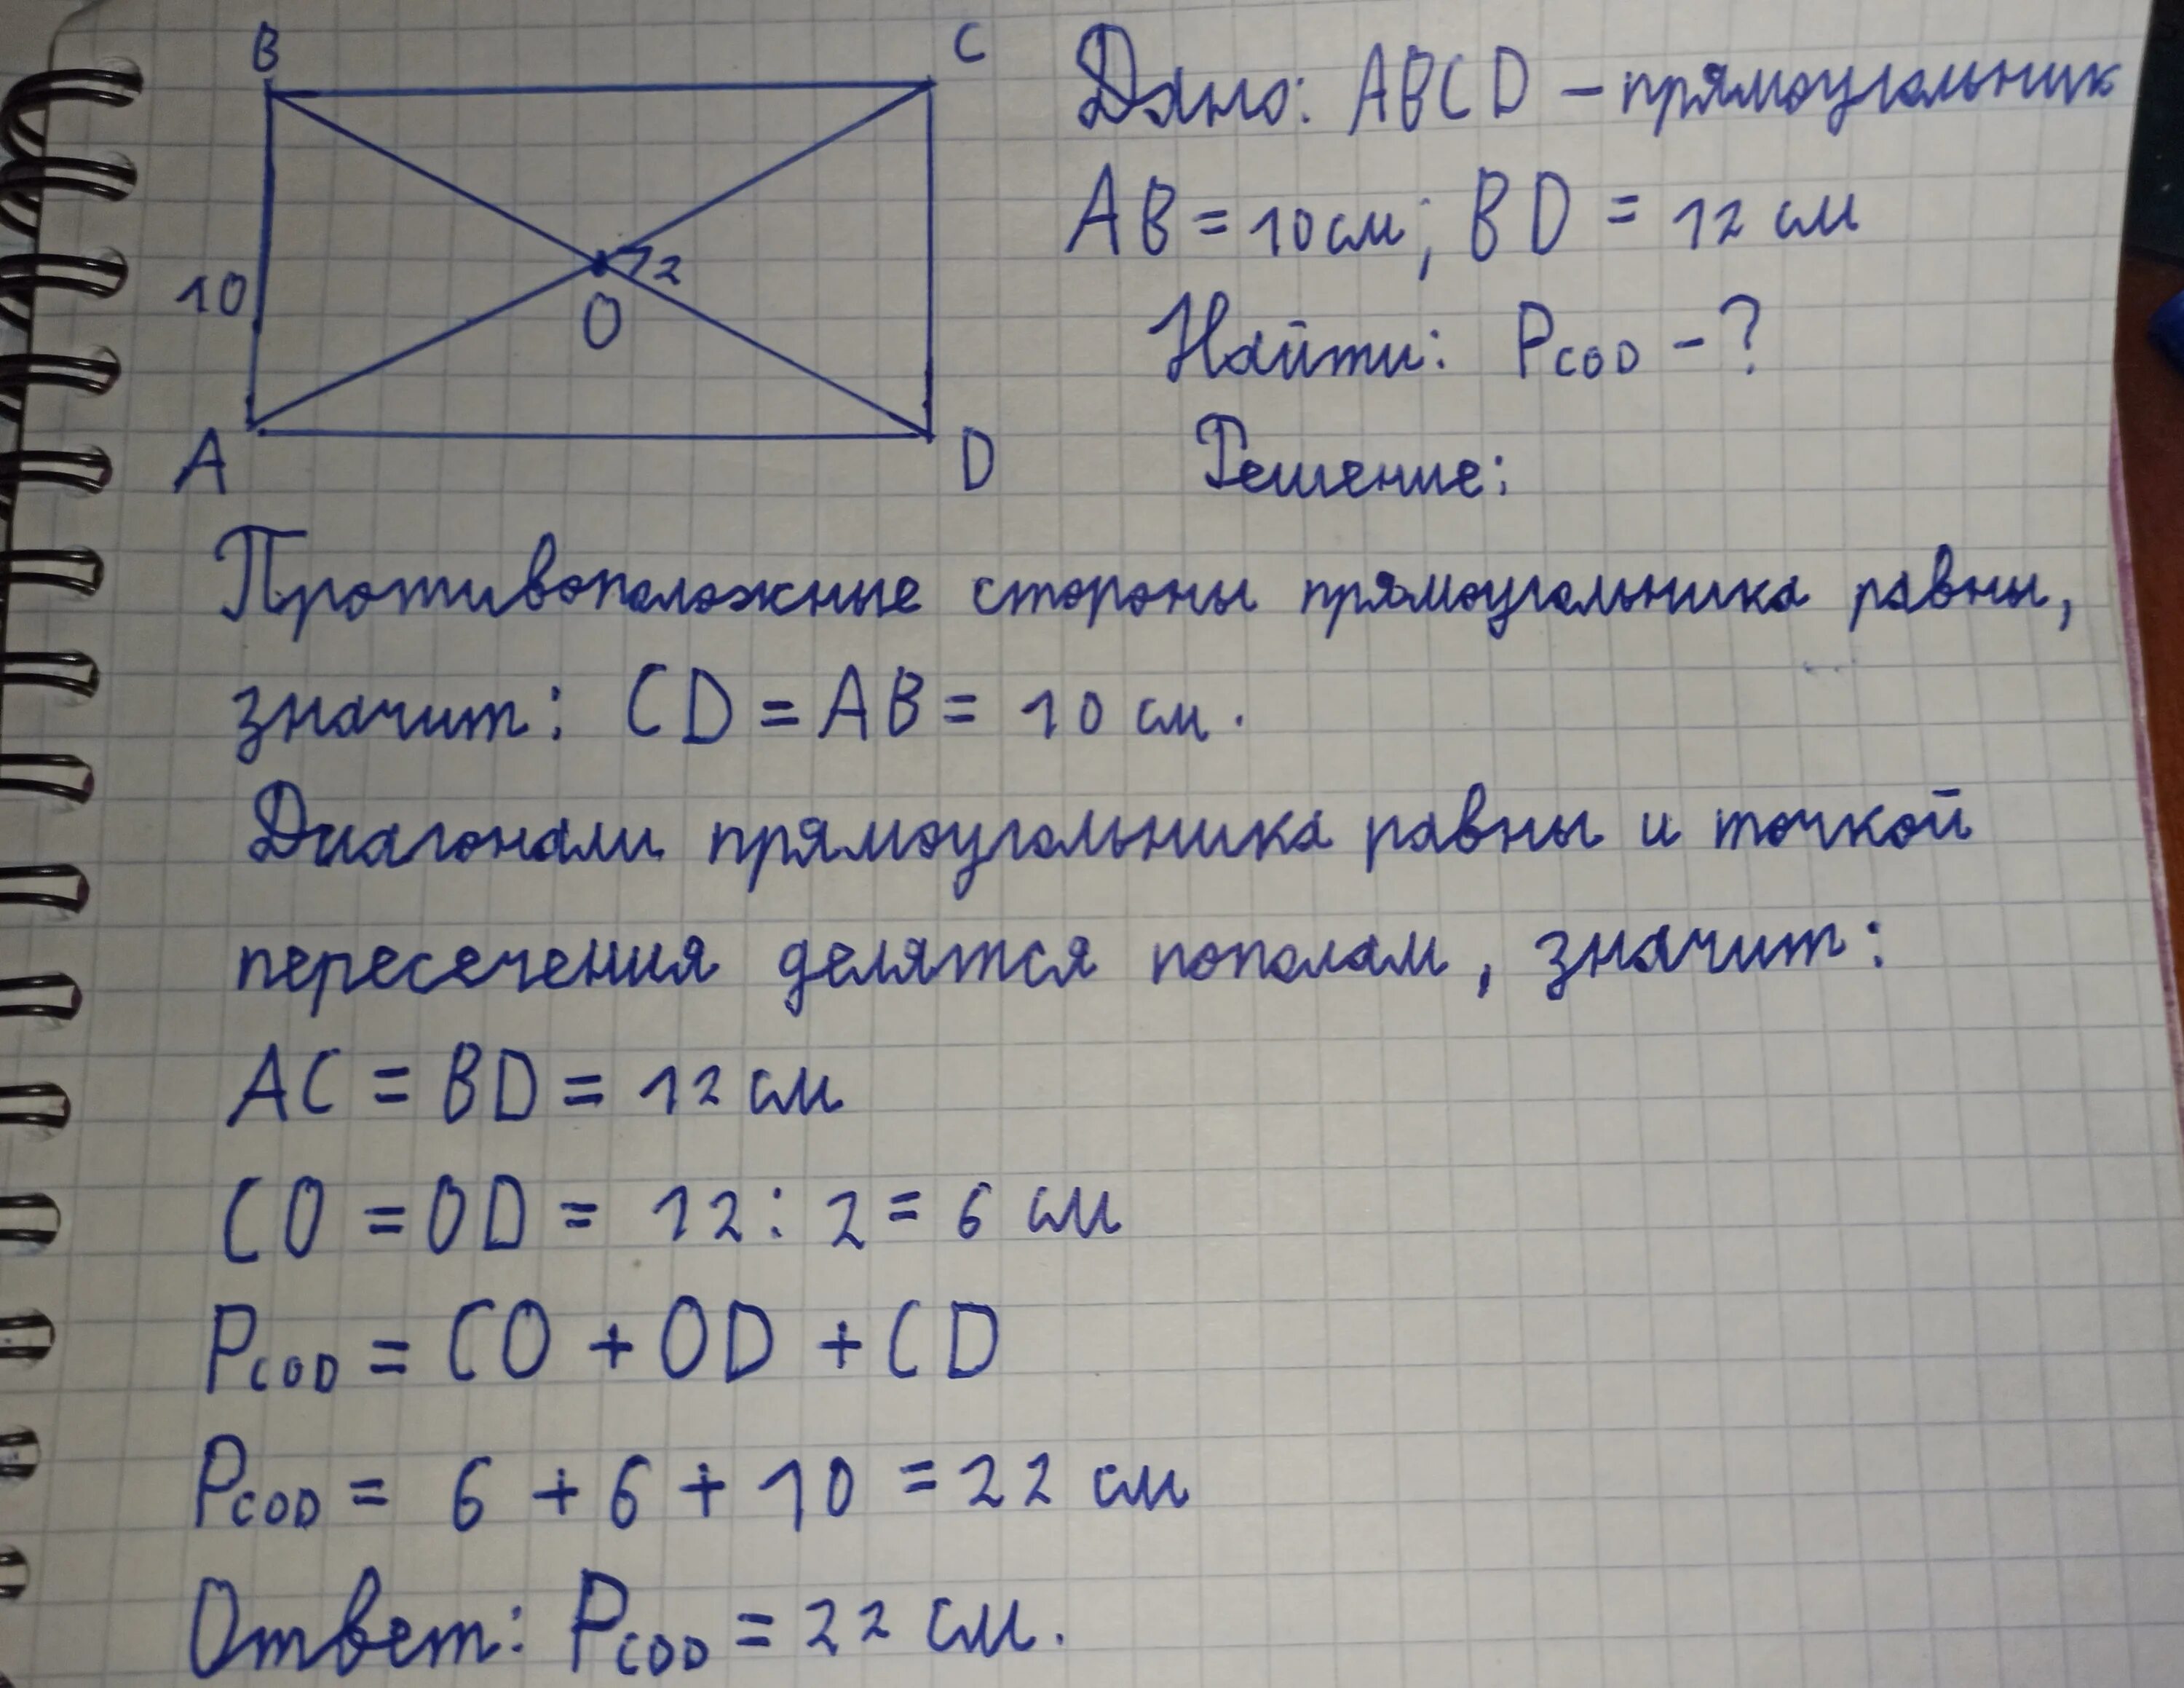 B
C
10
12
O
A
D
Дано: ABCD – прямоугольник
AB = 10 см; BD = 12 см
Найти: PCOD – ?
Решение:
Противоположные стороны прямоугольника равны,
значит: CD = AB = 10 см.
Диагонали прямоугольника равны и точкой
пересечения делятся пополам, значит:
AC = BD = 12 см
CO = OD = 12 : 2 = 6 см
PCOD = CO + OD + CD
PCOD = 6 + 6 + 10 = 22 см
Ответ: PCOD = 22 см.